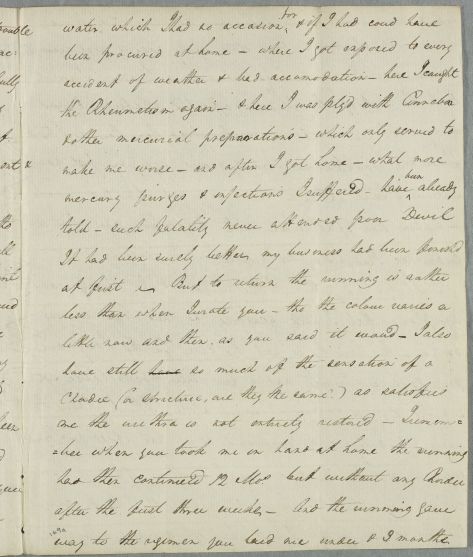 water which I had no occasion for, & if I had coud have
been procured at home – where I got exposed to every
accident of weather & bad accomodation – here I caught
the Rheumatism again – & here I was ply'd with Cinnabar
& other mercurial preparations – which only served to
make me worse – and after I got home – what more
mercury purges & injections I suffered – have been already
told – such fatality never attended poor Devil
It had been surely better my business had been
at first But to return the running is rather
less than when I wrote you – tho the colour varies a
little now and then, as you said it woud – I also
have still have so much of the sensation of a
Chordee (or stricture, are they the same?) as satisfies
me the urethra is not entirely restored – I remem=
=ber when you took me in hand at home the running
had then continued 12 Mos but without any Chordee
after the first three weeks – and the running gave
way to the regimen you laid me under & 3 months